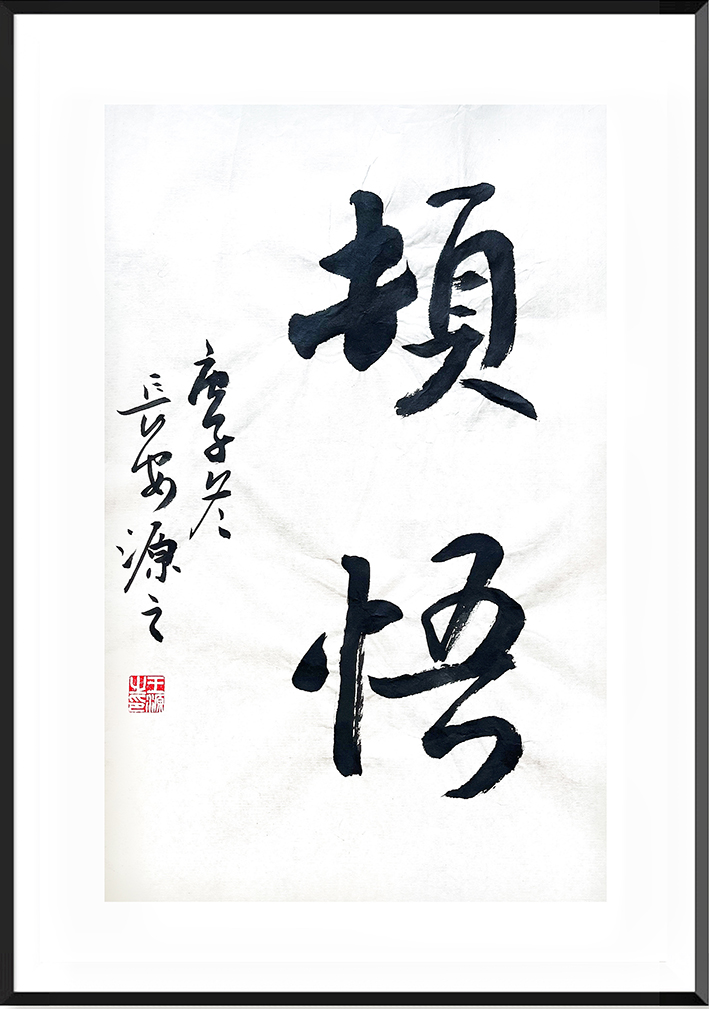 頓悟
庚子冬
長安源之
源之印